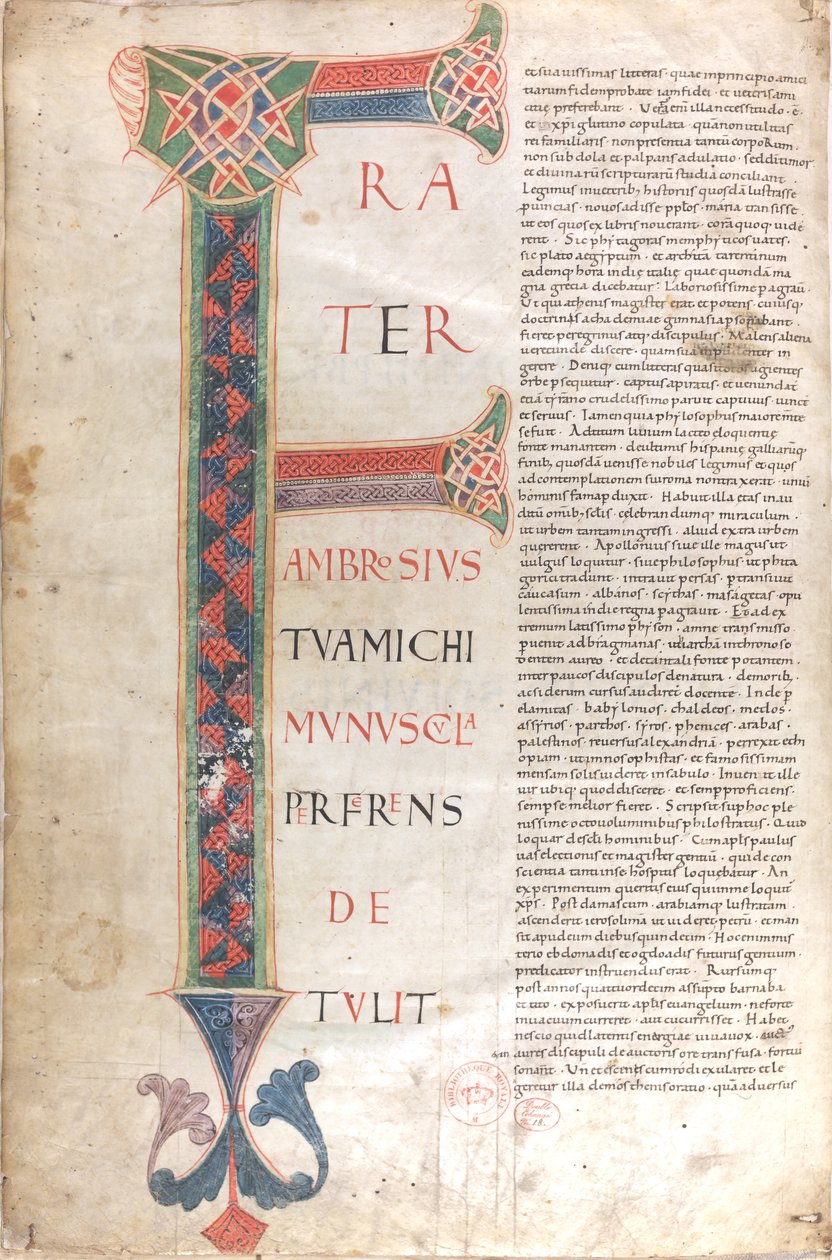 F
RA
TER
AMBROSIVS
TVAMICHI
MVNVSCVLA
PERFERENS
DE
TVLIT
et suavissimas litteras · quae in principio amici
tiarum fidem probate iam fidei · et veteris ami
citię preferebant · Vera enī illa necessitudo · ē ·
et xp̄i glutino copulata · quā non utilitas
rei familiaris · non presentia tantū corpoRum ·
non subdola et palpans adulatio · sed dī timor ·
et divinarū scripturarū studia conciliant ·
Legimus in veterib; historiis quosdā lustrasse
puincias · novos adisse pp̄los · maria transisse ·
ut eos quos ex libris noverant · corā quoq; vidē
rent · Sic phytagoras memphyticos vates ·
sic plato aegyptum · et architā tarentinum
eademq; hora indię italię quae quondā ma
gna grecia dicebatur · Laboriosissime pagravit
Ut qui athenis magister erat et potens · cuiusq;
doctrinas achademiae gimnasia psonabant ·
fieret peregrinus atq; discipulus · Malens aliena
verecunde discere · quam sua impudenter in
gerere · Deniq; cum litteras quasi toto fugientes
orbe psequitur · captus a piratis · et venundat
etiā tyrāno crudelissimo paruit captivus · vinct
et servus · Tamen quia phylosophus maior emēte
se fuit · Ad titum livium lacteo eloquentię
fonte manantem · de ultimis hispanię galliarūq;
finib; quosdā venisse nobiles legimus et quos
ad contemplationem sui roma non traxerat · unius
hominis fama pduxit · Habuit illa etas inau
ditū omīb; sc̄lis · celebrandumq; miraculum ·
ut urbem tantam ingressi · aliud extra urbem
quererent · Apollonius sive ille magus ut
vulgus loquitur · sive philosophus ut phita
gorici tradunt · intravit persas · ptransivit
caucasum · albanos · scythas · masagetas · opu
lentissima indie regna pagravit · Et ad ex
tremum latissimo physon · amne transmisso
pvenit ad bragmanas · ut iarcham in throno se
dentem aureo · et de tantali fonte potantem ·
inter paucos discipulos de natura · de morib; ·
ac siderum cursu audiret docente · Inde p
elamitas · babylonios · chaldeos · medos ·
assyrios · parthos · syros · phenices · arabas ·
palestinos · reversus alexandriā · perrexit ethi
opiam · ut imnosophistas · et famosissimam
mensam solis videret in sabulo · Invenit ille
vir ubiq; quod disceret · et semp proficiens ·
semp se melior fieret · Scripsit sup hoc ple
nissime octo voluminibus philostratus · Quid
loquar de sc̄li hominibus · Cum apl̄s paulus
vas electionis et magister gentiū · qui de con
scientia tanti in se hospitis loquebatur · An
experimentum queritis eius qui in me loquit̄
xp̄s · Post damascum · arabiamq; lustratam ·
ascenderit ierosolima ut videret petrū · et man
sit apud eum diebus quindecim · Hoc enim mis
terio ebdomadis et ogdoadis futurus gentium ·
predicator instruendus erat · Rursumq;
post annos quattuordecim assūpto barnaba
et tito · exposuerit apl̄is euangelium · ne forte
in vacuum curreret · aut cucurrisset · Habet
nescio quid latentis energiae viva vox ·
aures discipuli de auctoris ore transfusa · fortius
sonant · Unde et escenes cum rodi exularet et le
geretur illa demosthenis oratio · quā adversus
BIBLIOTHEQUE ROYALE
Double
échange
No. 18.